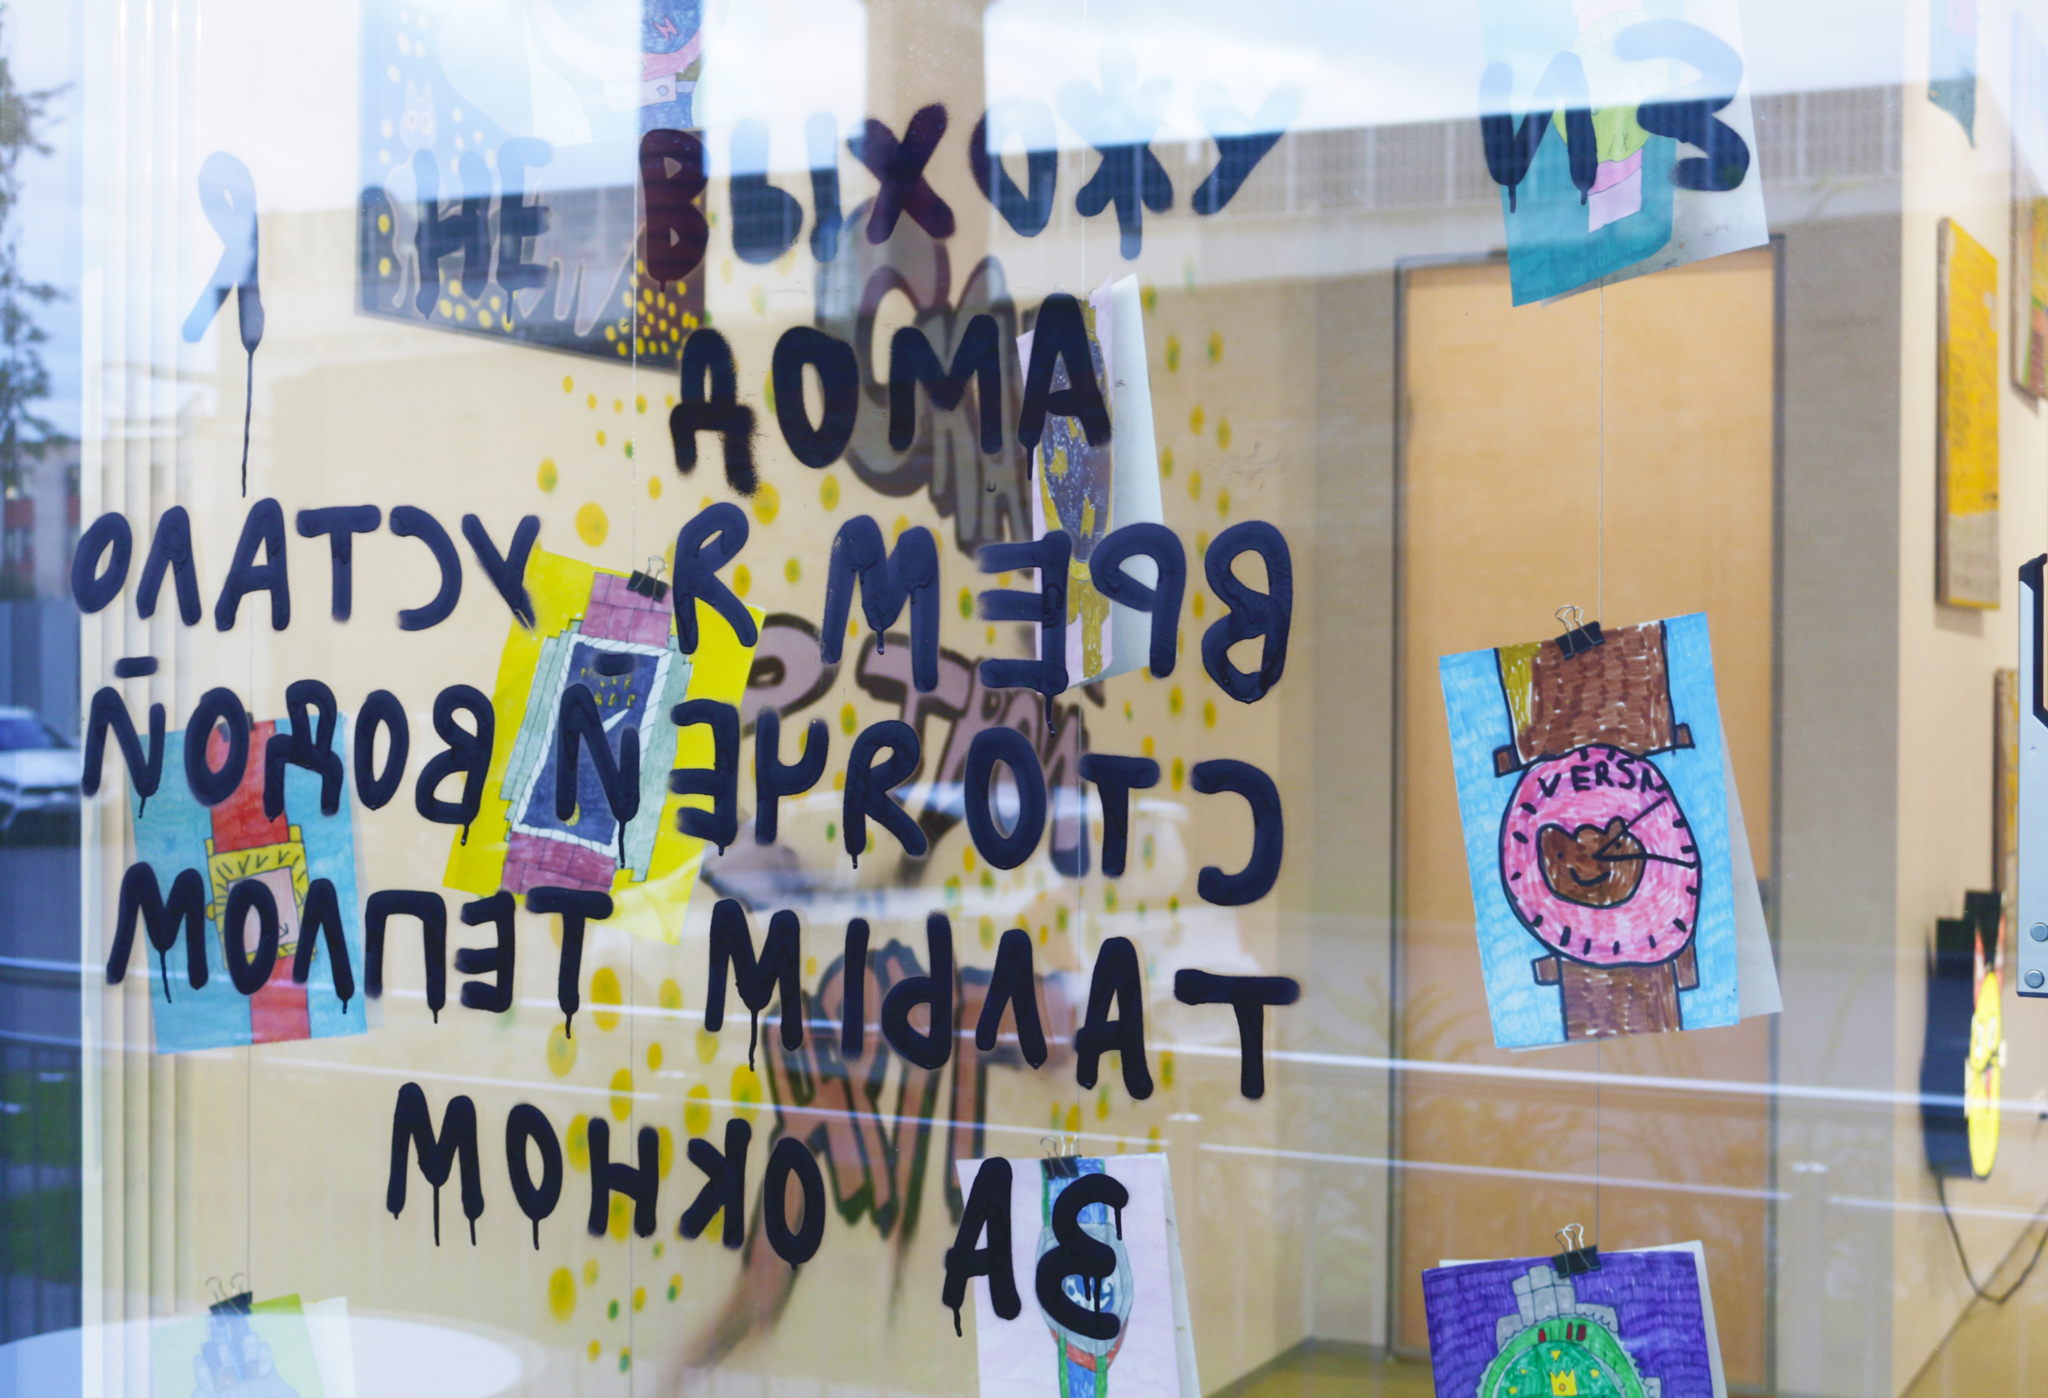 Я НЕ ВЫХОЖУ ИЗ
ДОМА
ВРЕМЯ УСТАЛО
СТОЯЧЕЙ ВОДОЙ
ТАЛЫМ ТЕПЛОМ
ЗА ОКНОМ